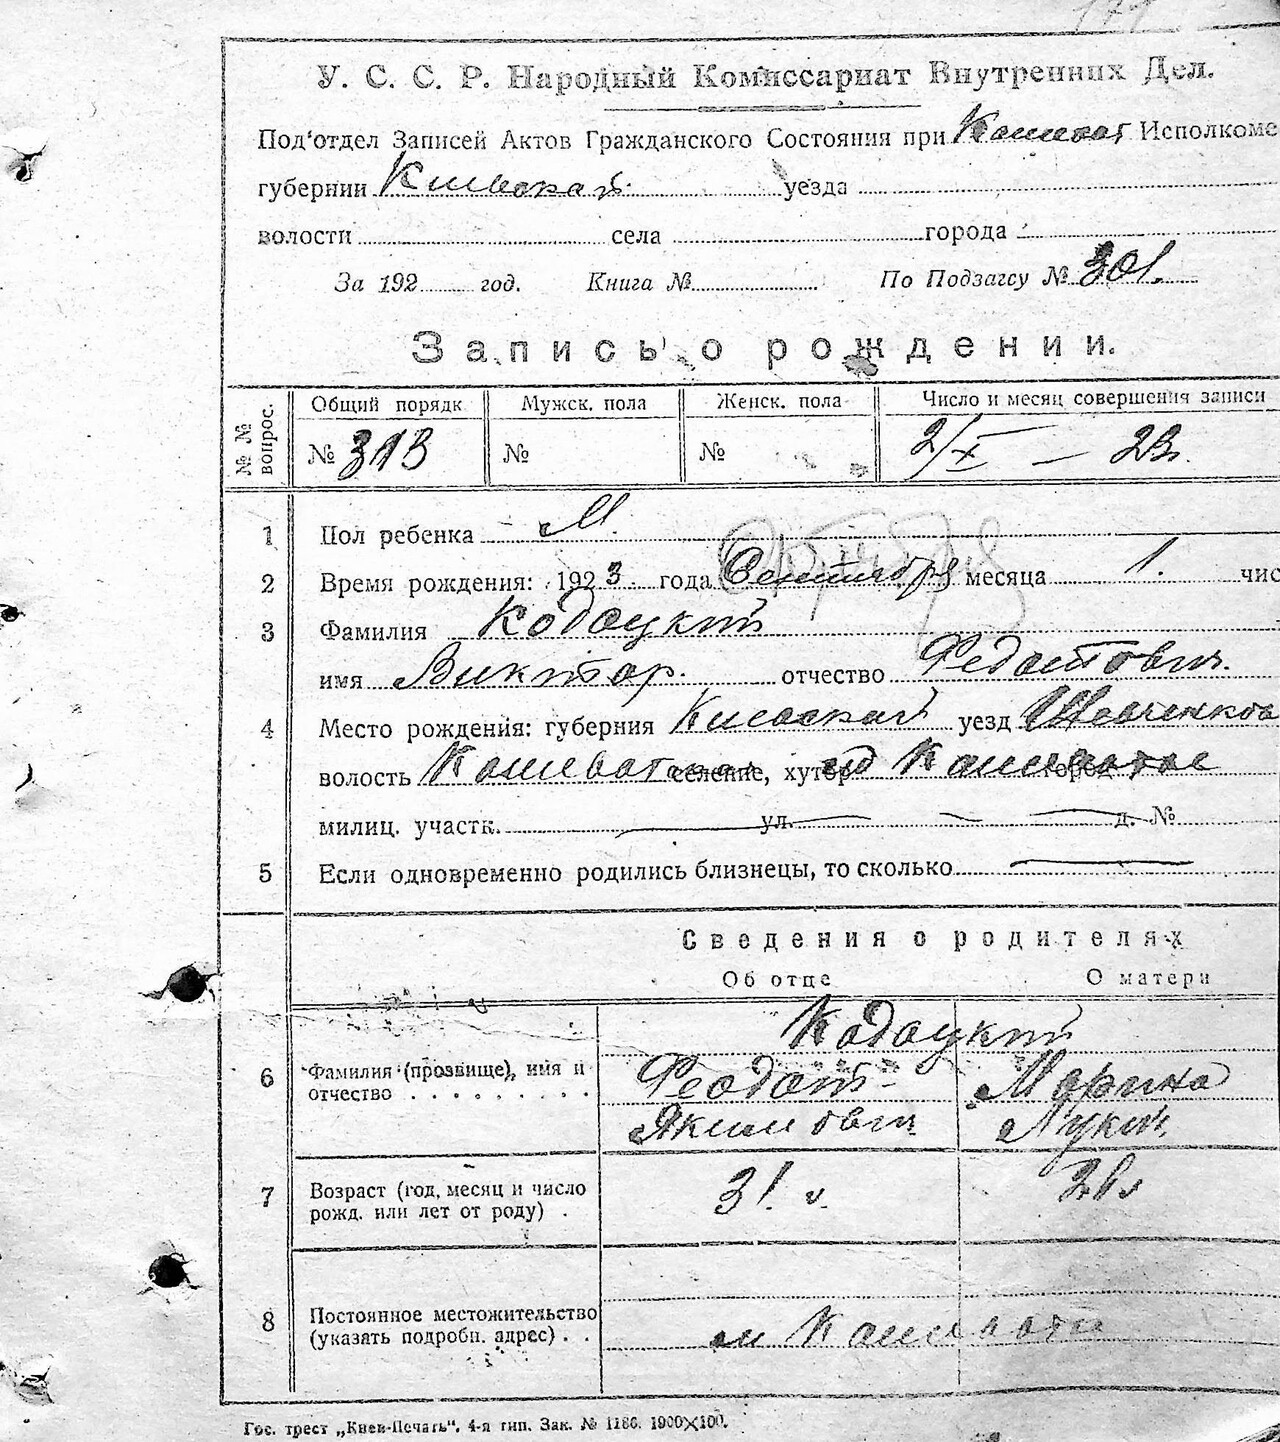 171
У. С. С. Р. Народный Комиссариат Внутренних Дел.
Под'отдел Записей Актов Гражданского Состояния при Кошеват Исполкоме
губернии Киевская уезда
волости села города
За 192 год. Книга № По Подзагсу № 301.
Запись о рождении.
№ № вопрос. Общий порядк Мужск. пола Женск. пола Число и месяц совершения записи
№ 313 № № 2/X — 23.
1 Пол ребенка М.
2 Время рождения: 1923 года Сентября месяца 1. чис
3 Фамилия Кодацкий
имя Виктор. отчество Федотович.
4 Место рождения: губерния Киевской уезд Шевченков
волость Кошеватская селение, хутор город Кошеватое
милиц. участк. ул. д. №
5 Если одновременно родились близнецы, то сколько
Сведения о родителях
Об отце О матери
Кодацкий
6 Фамилия (прозвище), имя и Феодот Марина
отчество Якимович Лукин.
7 Возраст (год, месяц и число 31.
рожд. или лет от роду)
8 Постоянное местожительство
(указать подробн. адрес) м Кошевата
Гос. трест „Киев-Печать". 4-я тип. Зак. № 1186. 1900×100.